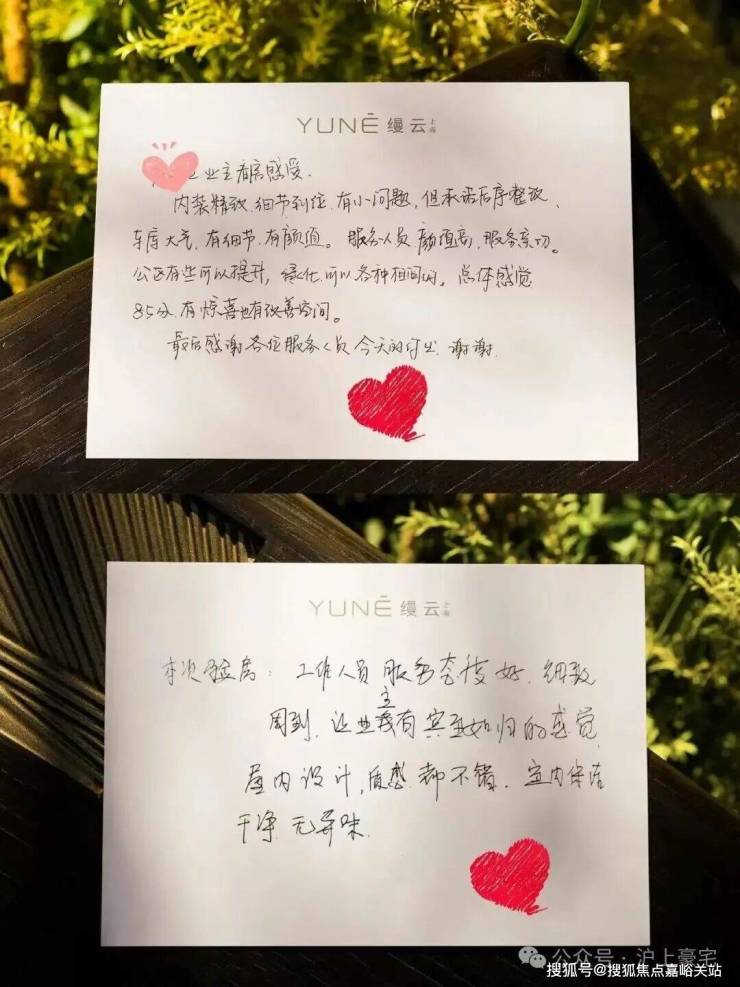 YUNĒ 缦云上海
业主看房感受.
内装精致.细节到位.有小问题,但承诺后序整改、
车库大气.有细节.有颜值。服务人员颜值高,服务亲切。
公区有些可以提升,绿化可以各种相间的。总体感觉
85分.有惊喜也有改善空间。
最后感谢各位服务人员今天的付出 谢谢.
YUNĒ 缦云上海
本次验房:工作人员服务态度好.细致
周到.让业主有宾至如归的感觉
屋内设计,质感都不错.室内保洁
干净 无异味.
公众号·沪上豪宅
搜狐号@搜狐焦点嘉峪关站